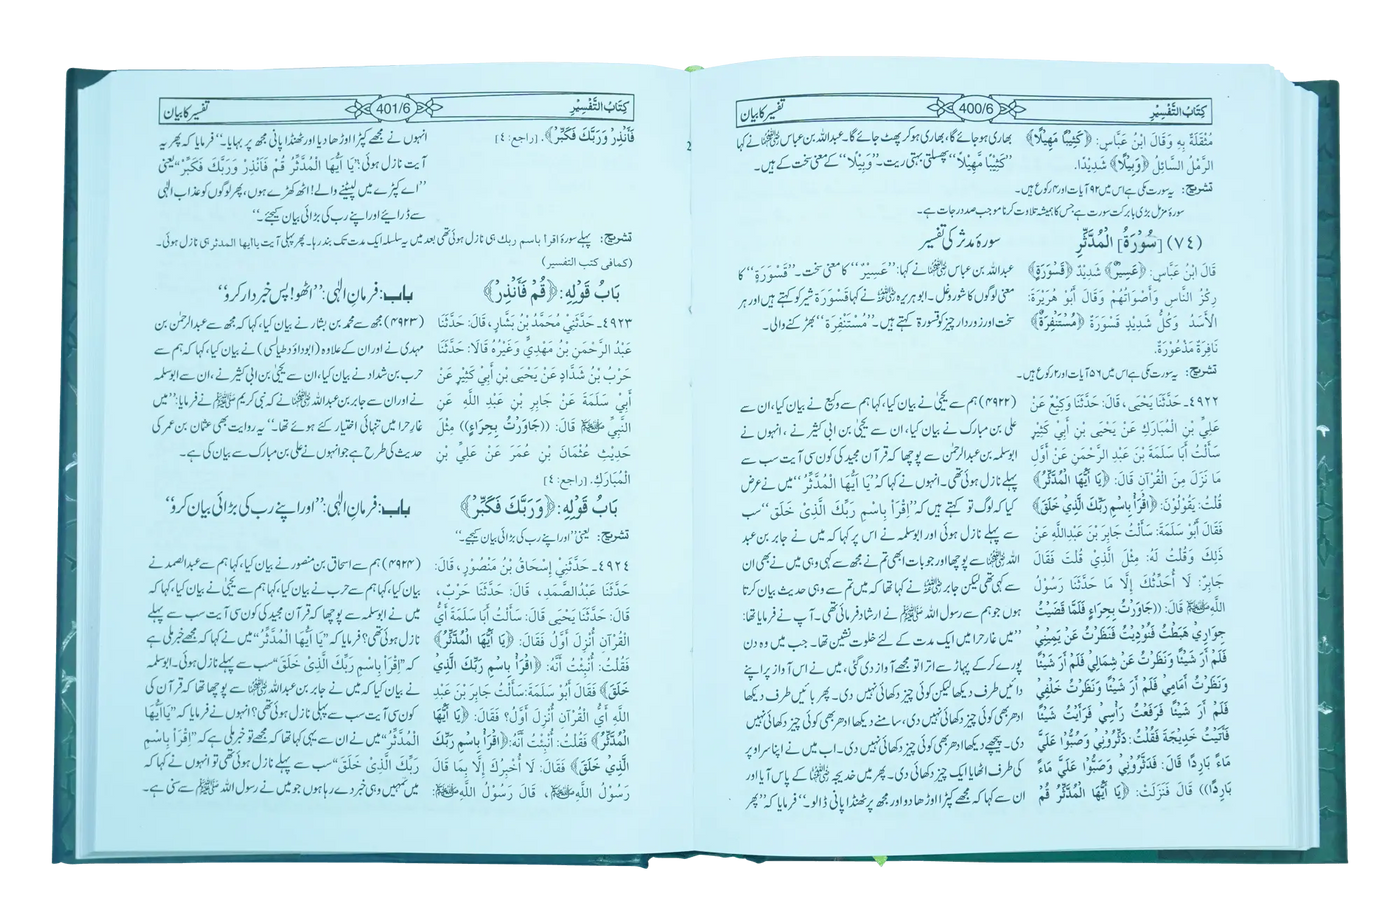 كِتَابُ التَّفْسِيْرِ 400/6 تفسیر کا بیان
مُثْقَلَةٌ بِهِ وَقَالَ ابْنُ عَبَّاسٍ: ﴿كَثِيْبًا مَهِيْلًا﴾
الرَّمْلُ السَّائِلُ ﴿وَبِيْلًا﴾ شَدِيْدًا.
بھاری ہو جائے گا، بھاری ہو کر پھٹ جائے گا۔ عبداللہ بن عباس رضی اللہ عنہما نے کہا
”كَثِيْبًا مَهِيْلاً“ پھسلتی بہتی ریت۔ ”وَبِيْلا“ کے معنی سخت کے ہیں۔
تشریح: یہ سورت مکی ہے اس میں ۹۲ آیات اور ۲ رکوع ہیں۔
سورۂ مزمل بڑی بابرکت سورت ہے جس کا ہمیشہ تلاوت کرنا موجب صد درجات ہے۔
(٧٤) [سُوْرَةُ] الْمُدَّثِّرِ
سورۂ مدثر کی تفسیر
قَالَ ابْنُ عَبَّاسٍ: ﴿عَسِيْرٌ﴾ شَدِيْدٌ ﴿قَسْوَرَةٍ﴾
رِكْزُ النَّاسِ وَأَصْوَاتُهُمْ وَقَالَ أَبُوْ هُرَيْرَةَ:
الْأَسَدُ وَكُلُّ شَدِيْدٍ قَسْوَرَةٌ ﴿مُسْتَنْفِرَةٌ﴾
نَافِرَةٌ مَذْعُوْرَةٌ.
عبداللہ بن عباس رضی اللہ عنہما نے کہا: ”عَسِيْرٌ“ کا معنی سخت۔ ”قَسْوَرَةٍ“ کا
معنی لوگوں کا شور و غل۔ ابو ہریرہ رضی اللہ عنہ نے کہا قَسْوَرَة شیر کو کہتے ہیں اور ہر
سخت اور زوردار چیز کو قسورۃ کہتے ہیں۔ ”مُسْتَنْفِرَة“ بھڑکنے والی۔
تشریح: یہ سورت مکی ہے اس میں ۵۶ آیات اور ۲ رکوع ہیں۔
٤٩٢٢۔ حَدَّثَنَا يَحْيَى، قَالَ: حَدَّثَنَا وَكِيْعٌ عَنْ
عَلِيِّ بْنِ الْمُبَارَكِ عَنْ يَحْيَى بْنِ أَبِيْ كَثِيْرٍ
سَأَلْتُ أَبَا سَلَمَةَ بْنَ عَبْدِ الرَّحْمَنِ عَنْ أَوَّلِ
مَا نَزَلَ مِنَ الْقُرْآنِ قَالَ: ﴿يَا أَيُّهَا الْمُدَّثِّرُ﴾
قُلْتُ: يَقُوْلُوْنَ: ﴿اقْرَأْ بِاسْمِ رَبِّكَ الَّذِيْ خَلَقَ﴾
فَقَالَ أَبُوْ سَلَمَةَ: سَأَلْتُ جَابِرَ بْنَ عَبْدِاللَّهِ عَنْ
ذَلِكَ وَقُلْتُ لَهُ: مِثْلَ الَّذِيْ قُلْتَ فَقَالَ
جَابِرٌ: لَا أُحَدِّثُكَ إِلَّا مَا حَدَّثَنَا رَسُوْلُ
اللَّهِ ﷺ قَالَ: ((جَاوَرْتُ بِحِرَاءٍ فَلَمَّا قَضَيْتُ
جِوَارِيْ هَبَطْتُ فَنُوْدِيْتُ فَنَظَرْتُ عَنْ يَمِيْنِيْ
فَلَمْ أَرَ شَيْئًا وَنَظَرْتُ عَنْ شِمَالِيْ فَلَمْ أَرَ شَيْئًا
وَنَظَرْتُ أَمَامِيْ فَلَمْ أَرَ شَيْئًا وَنَظَرْتُ خَلْفِيْ
فَلَمْ أَرَ شَيْئًا فَرَفَعْتُ رَأْسِيْ فَرَأَيْتُ شَيْئًا
فَأَتَيْتُ خَدِيْجَةَ فَقُلْتُ: دَثِّرُوْنِيْ وَصُبُّوْا عَلَيَّ
مَاءً بَارِدًا قَالَ: فَدَثَّرُوْنِيْ وَصَبُّوْا عَلَيَّ مَاءً
بَارِدًا)) قَالَ فَنَزَلَتْ: ﴿يَا أَيُّهَا الْمُدَّثِّرُ قُمْ
(۴۹۲۲) ہم سے یحییٰ نے بیان کیا، کہا ہم سے وکیع نے بیان کیا، ان سے
علی بن مبارک نے بیان کیا، ان سے یحییٰ بن ابی کثیر نے، انہوں نے
ابوسلمہ بن عبدالرحمٰن سے پوچھا کہ قرآن مجید کی کون سی آیت سب سے
پہلے نازل ہوئی تھی۔ انہوں نے کہا کہ ”يَا أَيُّهَا الْمُدَّثِّرُ“ میں نے عرض
کیا کہ لوگ تو کہتے ہیں کہ ”اِقْرَأْ بِاسْمِ رَبِّكَ الَّذِيْ خَلَقَ“ سب
سے پہلے نازل ہوئی اور ابوسلمہ نے اس پر کہا کہ میں نے جابر بن عبد
اللہ رضی اللہ عنہما سے پوچھا اور جو بات ابھی تم نے مجھ سے کہی وہی میں نے بھی ان
سے کہی تھی لیکن جابر رضی اللہ عنہ نے کہا تھا کہ میں تم سے وہی حدیث بیان کرتا
ہوں جو ہم سے رسول اللہ ﷺ نے ارشاد فرمائی تھی۔ آپ نے فرمایا تھا:
”میں غار حرا میں ایک مدت کے لئے خلوت نشین تھا۔ جب میں وہ دن
پورے کر کے پہاڑ سے اترا تو مجھے آواز دی گئی، میں نے اس آواز پر اپنے
دائیں طرف دیکھا لیکن کوئی چیز دکھائی نہیں دی۔ پھر بائیں طرف دیکھا
ادھر بھی کوئی چیز دکھائی نہیں دی، سامنے دیکھا ادھر بھی کوئی چیز دکھائی نہیں
دی۔ پیچھے دیکھا ادھر بھی کوئی چیز دکھائی نہیں دی۔ اب میں نے اپنا سر اوپر
کی طرف اٹھایا ایک چیز دکھائی دی۔ پھر میں خدیجہ رضی اللہ عنہا کے پاس آیا اور
ان سے کہا کہ مجھے کپڑا اوڑھا دو اور مجھ پر ٹھنڈا پانی ڈالو۔“ فرمایا کہ ”پھر
كِتَابُ التَّفْسِيْرِ 401/6 تفسیر کا بیان
فَأَنْذِرْ وَرَبَّكَ فَكَبِّرْ﴾. [راجع: ٤]
انہوں نے مجھے کپڑا اوڑھا دیا اور ٹھنڈا پانی مجھ پر بہایا۔“ فرمایا کہ پھر یہ
آیت نازل ہوئی: ”يَا أَيُّهَا الْمُدَّثِّرُ قُمْ فَأَنْذِرْ وَرَبَّكَ فَكَبِّرْ“ یعنی
”اے کپڑے میں لپٹنے والے! اٹھ کھڑے ہوں، پھر لوگوں کو عذاب الٰہی
سے ڈرایئے اور اپنے رب کی بڑائی بیان کیجئے۔“
تشریح: پہلے سورۂ اقرأ باسم ربك ہی نازل ہوئی تھی بعد میں یہ سلسلہ ایک مدت تک بند رہا۔ پھر پہلی آیت یاایها المدثر ہی نازل ہوئی۔
(كمافى كتب التفسير)
بَابُ قَوْلِهِ: ﴿قُمْ فَأَنْذِرْ﴾
باب: فرمان الٰہی: ”اٹھو! پس خبردار کرو“
٤٩٢٣۔ حَدَّثَنِيْ مُحَمَّدُ بْنُ بَشَّارٍ، قَالَ: حَدَّثَنَا
عَبْدُ الرَّحْمَنِ بْنُ مَهْدِيٍّ وَغَيْرُهُ قَالَا: حَدَّثَنَا
حَرْبُ بْنُ شَدَّادٍ عَنْ يَحْيَى بْنِ أَبِيْ كَثِيْرٍ عَنْ
أَبِيْ سَلَمَةَ عَنْ جَابِرِ بْنِ عَبْدِ اللَّهِ عَنِ
النَّبِيِّ ﷺ قَالَ: ((جَاوَرْتُ بِحِرَاءٍ)) مِثْلَ
حَدِيْثِ عُثْمَانَ بْنِ عُمَرَ عَنْ عَلِيِّ بْنِ
الْمُبَارَكِ. [راجع: ٤]
(۴۹۲۳) مجھ سے محمد بن بشار نے بیان کیا، کہا کہ مجھ سے عبدالرحمٰن بن
مہدی نے اور ان کے علاوہ (ابوداؤد طیالسی) نے بیان کیا، کہا کہ ہم سے
حرب بن شداد نے بیان کیا، ان سے یحییٰ بن ابی کثیر نے، ان سے ابوسلمہ
نے اور ان سے جابر بن عبداللہ رضی اللہ عنہما نے کہ نبی کریم ﷺ نے فرمایا: ”میں
غار حرا میں تنہائی اختیار کئے ہوئے تھا۔“ یہ روایت بھی عثمان بن عمر کی
حدیث کی طرح ہے جو انہوں نے علی بن مبارک سے بیان کی ہے۔
بَابُ قَوْلِهِ: ﴿وَرَبَّكَ فَكَبِّرْ﴾
باب: فرمان الٰہی: ”اور اپنے رب کی بڑائی بیان کرو“
تشریح: یعنی ”اور اپنے رب کی بڑائی بیان کیجئے۔“
٤٩٢٤۔ حَدَّثَنِيْ إِسْحَاقُ بْنُ مَنْصُوْرٍ، قَالَ:
حَدَّثَنَا عَبْدُالصَّمَدِ، قَالَ: حَدَّثَنَا حَرْبٌ،
قَالَ: حَدَّثَنَا يَحْيَى قَالَ: سَأَلْتُ أَبَا سَلَمَةَ أَيُّ
الْقُرْآنِ أُنْزِلَ أَوَّلُ فَقَالَ: ﴿يَا أَيُّهَا الْمُدَّثِّرُ﴾
فَقُلْتُ: أُنْبِئْتُ أَنَّهُ: ﴿اقْرَأْ بِاسْمِ رَبِّكَ الَّذِيْ
خَلَقَ﴾ فَقَالَ أَبُوْ سَلَمَةَ: سَأَلْتُ جَابِرَ بْنَ عَبْدِ
اللَّهِ أَيُّ الْقُرْآنِ أُنْزِلَ أَوَّلُ؟ فَقَالَ: ﴿يَا أَيُّهَا
الْمُدَّثِّرُ﴾ فَقُلْتُ: أُنْبِئْتُ أَنَّهُ: ﴿اقْرَأْ بِاسْمِ رَبِّكَ
الَّذِيْ خَلَقَ﴾ فَقَالَ: لَا أُخْبِرُكَ إِلَّا بِمَا قَالَ
رَسُوْلُ اللَّهِ ﷺ، قَالَ رَسُوْلُ اللَّهِ ﷺ:
(۴۹۲۴) ہم سے اسحاق بن منصور نے بیان کیا، کہا ہم سے عبدالصمد نے
بیان کیا، کہا ہم سے حرب نے بیان کیا، کہا ہم سے یحییٰ نے بیان کیا، کہا کہ
میں نے ابوسلمہ سے پوچھا کہ قرآن مجید کی کون سی آیت سب سے پہلے
نازل ہوئی تھی؟ فرمایا کہ ”يَا أَيُّهَا الْمُدَّثِّرُ“ میں نے کہا کہ مجھے خبر ملی ہے
کہ ”اقْرَأْ بِاسْمِ رَبِّكَ الَّذِيْ خَلَقَ“ سب سے پہلے نازل ہوئی۔ ابوسلمہ
نے بیان کیا کہ میں نے جابر بن عبداللہ رضی اللہ عنہما سے پوچھا تھا کہ قرآن کی
کون سی آیت سب سے پہلی نازل ہوئی تھی؟ انہوں نے فرمایا کہ ”يَاأَيُّهَا
الْمُدَّثِّرُ“ میں نے ان سے یہی کہا تھا کہ مجھے تو خبر ملی ہے کہ ”اقْرَأْ بِاسْمِ
رَبِّكَ الَّذِيْ خَلَقَ“ سب سے پہلے نازل ہوئی تھی تو انہوں نے کہا کہ
میں تمہیں وہی خبر دے رہا ہوں جو میں نے رسول اللہ ﷺ سے سنی ہے۔